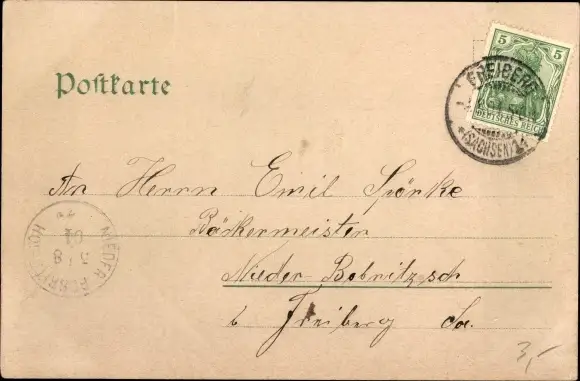 Postkarte
5 5
DEUTSCHES REICH
FREIBERG
*(SACHSEN)*
An Herrn Emil Spörke
Bäckermeister
Nieder-Bobritzsch
b Freiberg Sa.
NIEDER
5/8
01
3,-